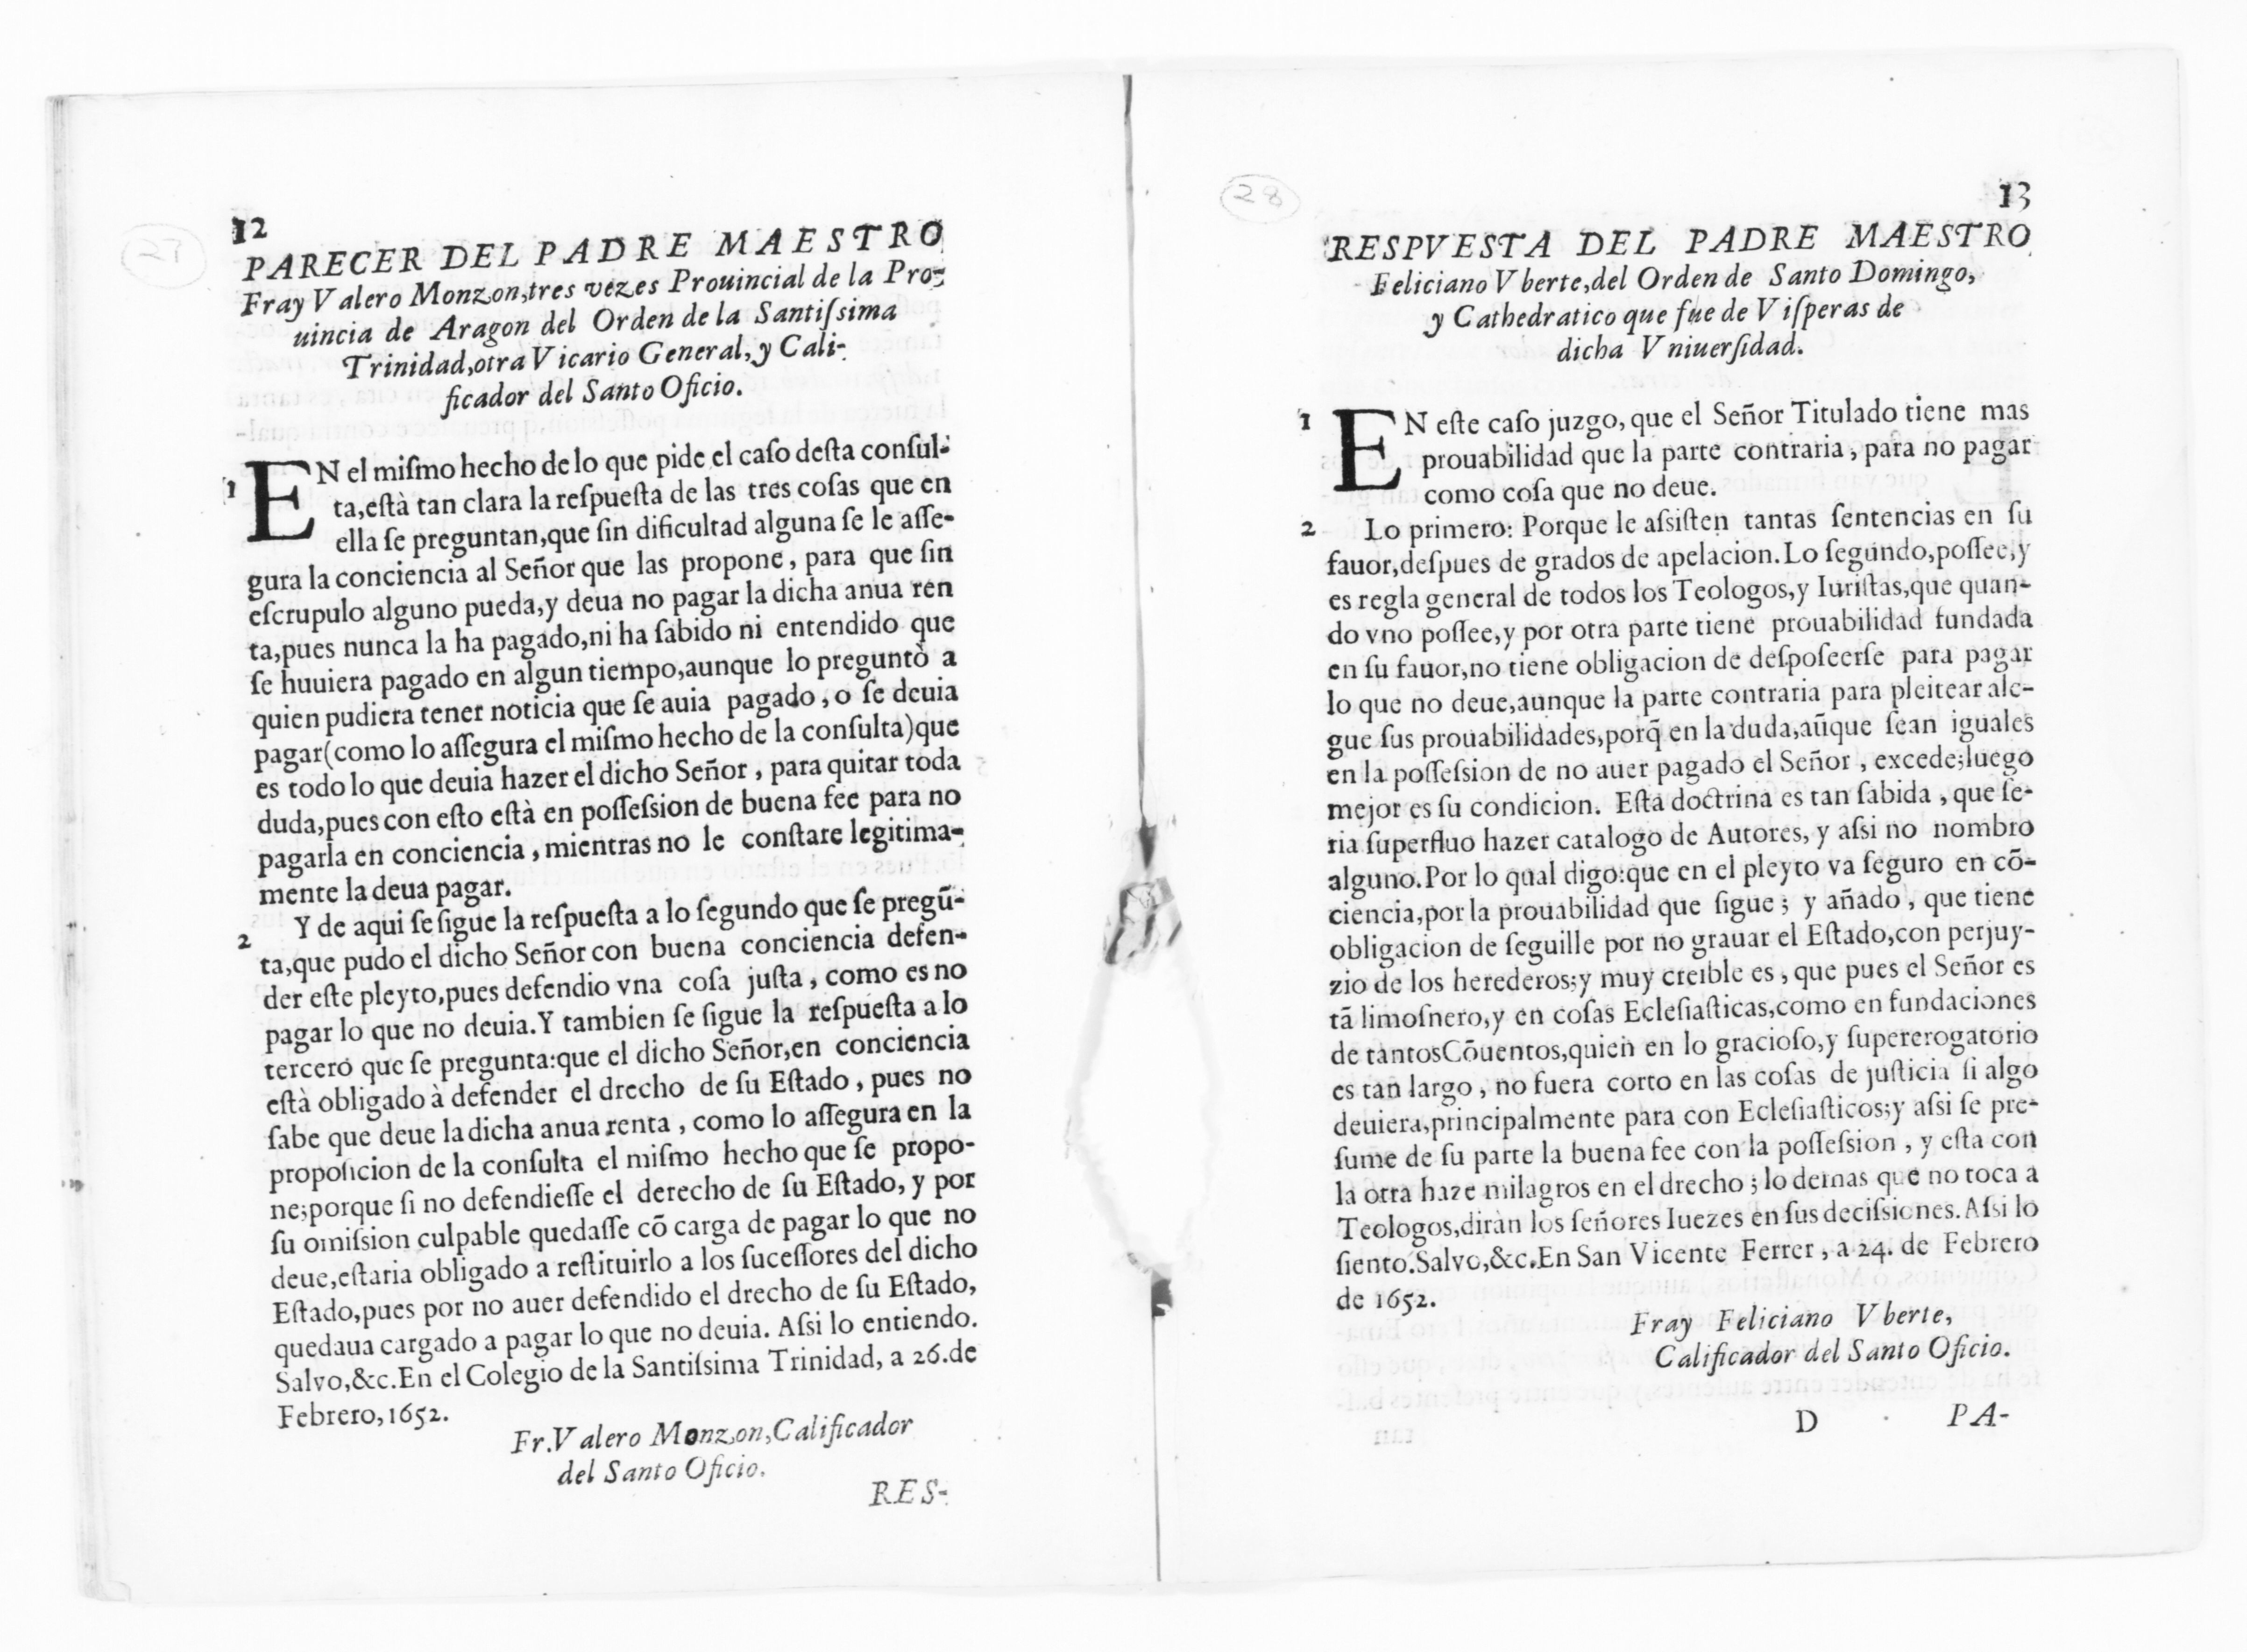 27
12
PARECER DEL PADRE MAESTRO
Fray Valero Monzon,tres vezes Prouincial de la Pro-
uincia de Aragon del Orden de la Santiſsima
Trinidad,otra Vicario General, y Cali-
ficador del Santo Oficio.
1 EN el miſmo hecho de lo que pide el caſo deſta conſul-
ta,eſtà tan clara la reſpueſta de las tres coſas que en
ella ſe preguntan,que ſin dificultad alguna ſe le aſſe-
gura la conciencia al Señor que las propone, para que ſin
eſcrupulo alguno pueda,y deua no pagar la dicha anua ren
ta,pues nunca la ha pagado,ni ha ſabido ni entendido que
ſe huuiera pagado en algun tiempo,aunque lo preguntò a
quien pudiera tener noticia que ſe auia pagado, o ſe deuia
pagar(como lo aſſegura el miſmo hecho de la conſulta)que
es todo lo que deuia hazer el dicho Señor, para quitar toda
duda,pues con eſto eſtà en poſſeſsion de buena fee para no
pagarla en conciencia, mientras no le conſtare legitima-
mente la deua pagar.
2 Y de aqui ſe ſigue la reſpueſta a lo ſegundo que ſe pregũ-
ta,que pudo el dicho Señor con buena conciencia defen-
der eſte pleyto,pues defendio vna coſa juſta, como es no
pagar lo que no deuia.Y tambien ſe ſigue la reſpueſta a lo
tercero que ſe pregunta:que el dicho Señor,en conciencia
eſtà obligado à defender el drecho de ſu Eſtado, pues no
ſabe que deue la dicha anua renta, como lo aſſegura en la
propoſicion de la conſulta el miſmo hecho que ſe propo-
ne;porque ſi no defendieſſe el derecho de ſu Eſtado, y por
ſu omiſsion culpable quedaſſe cõ carga de pagar lo que no
deue,eſtaria obligado a reſtituirlo a los ſuceſſores del dicho
Eſtado,pues por no auer defendido el drecho de ſu Eſtado,
quedaua cargado a pagar lo que no deuia. Aſsi lo entiendo.
Salvo,&c.En el Colegio de la Santiſsima Trinidad, a 26.de
Febrero,1652.
Fr.Valero Monzon,Calificador
del Santo Oficio.
RES-
28
13
RESPVESTA DEL PADRE MAESTRO
Feliciano Vberte,del Orden de Santo Domingo,
y Cathedratico que fue de Viſperas de
dicha Vniuerſidad.
1 EN eſte caſo juzgo, que el Señor Titulado tiene mas
prouabilidad que la parte contraria, para no pagar
como coſa que no deue.
2 Lo primero: Porque le aſsiſten tantas ſentencias en ſu
fauor,deſpues de grados de apelacion.Lo ſegundo,poſſee,y
es regla general de todos los Teologos,y Iuriſtas,que quan-
do vno poſſee,y por otra parte tiene prouabilidad fundada
en ſu fauor,no tiene obligacion de deſpoſeerſe para pagar
lo que no deue,aunque la parte contraria para pleitear ale-
gue ſus prouabilidades,porq̃ en la duda,aũque ſean iguales
en la poſſeſsion de no auer pagado el Señor, excede;luego
mejor es ſu condicion. Eſta doctrina es tan ſabida, que ſe-
ria ſuperfluo hazer catalogo de Autores, y aſsi no nombro
alguno.Por lo qual digo:que en el pleyto va ſeguro en cõ-
ciencia,por la prouabilidad que ſigue; y añado, que tiene
obligacion de ſeguille por no grauar el Eſtado,con perjuy-
zio de los herederos;y muy creible es, que pues el Señor es
tã limoſnero,y en coſas Ecleſiaſticas,como en fundaciones
de tantosCõuentos,quien en lo gracioſo,y ſupererogatorio
es tan largo, no fuera corto en las coſas de juſticia ſi algo
deuiera,principalmente para con Ecleſiaſticos;y aſsi ſe pre-
ſume de ſu parte la buena fee con la poſſeſsion, y eſta con
la otra haze milagros en el drecho; lo demas que no toca a
Teologos,diràn los ſeñores Iuezes en ſus deciſsiones.Aſsi lo
ſiento.Salvo,&c.En San Vicente Ferrer, a 24. de Febrero
de 1652.
Fray Feliciano Vberte,
Calificador del Santo Oficio.
D PA-